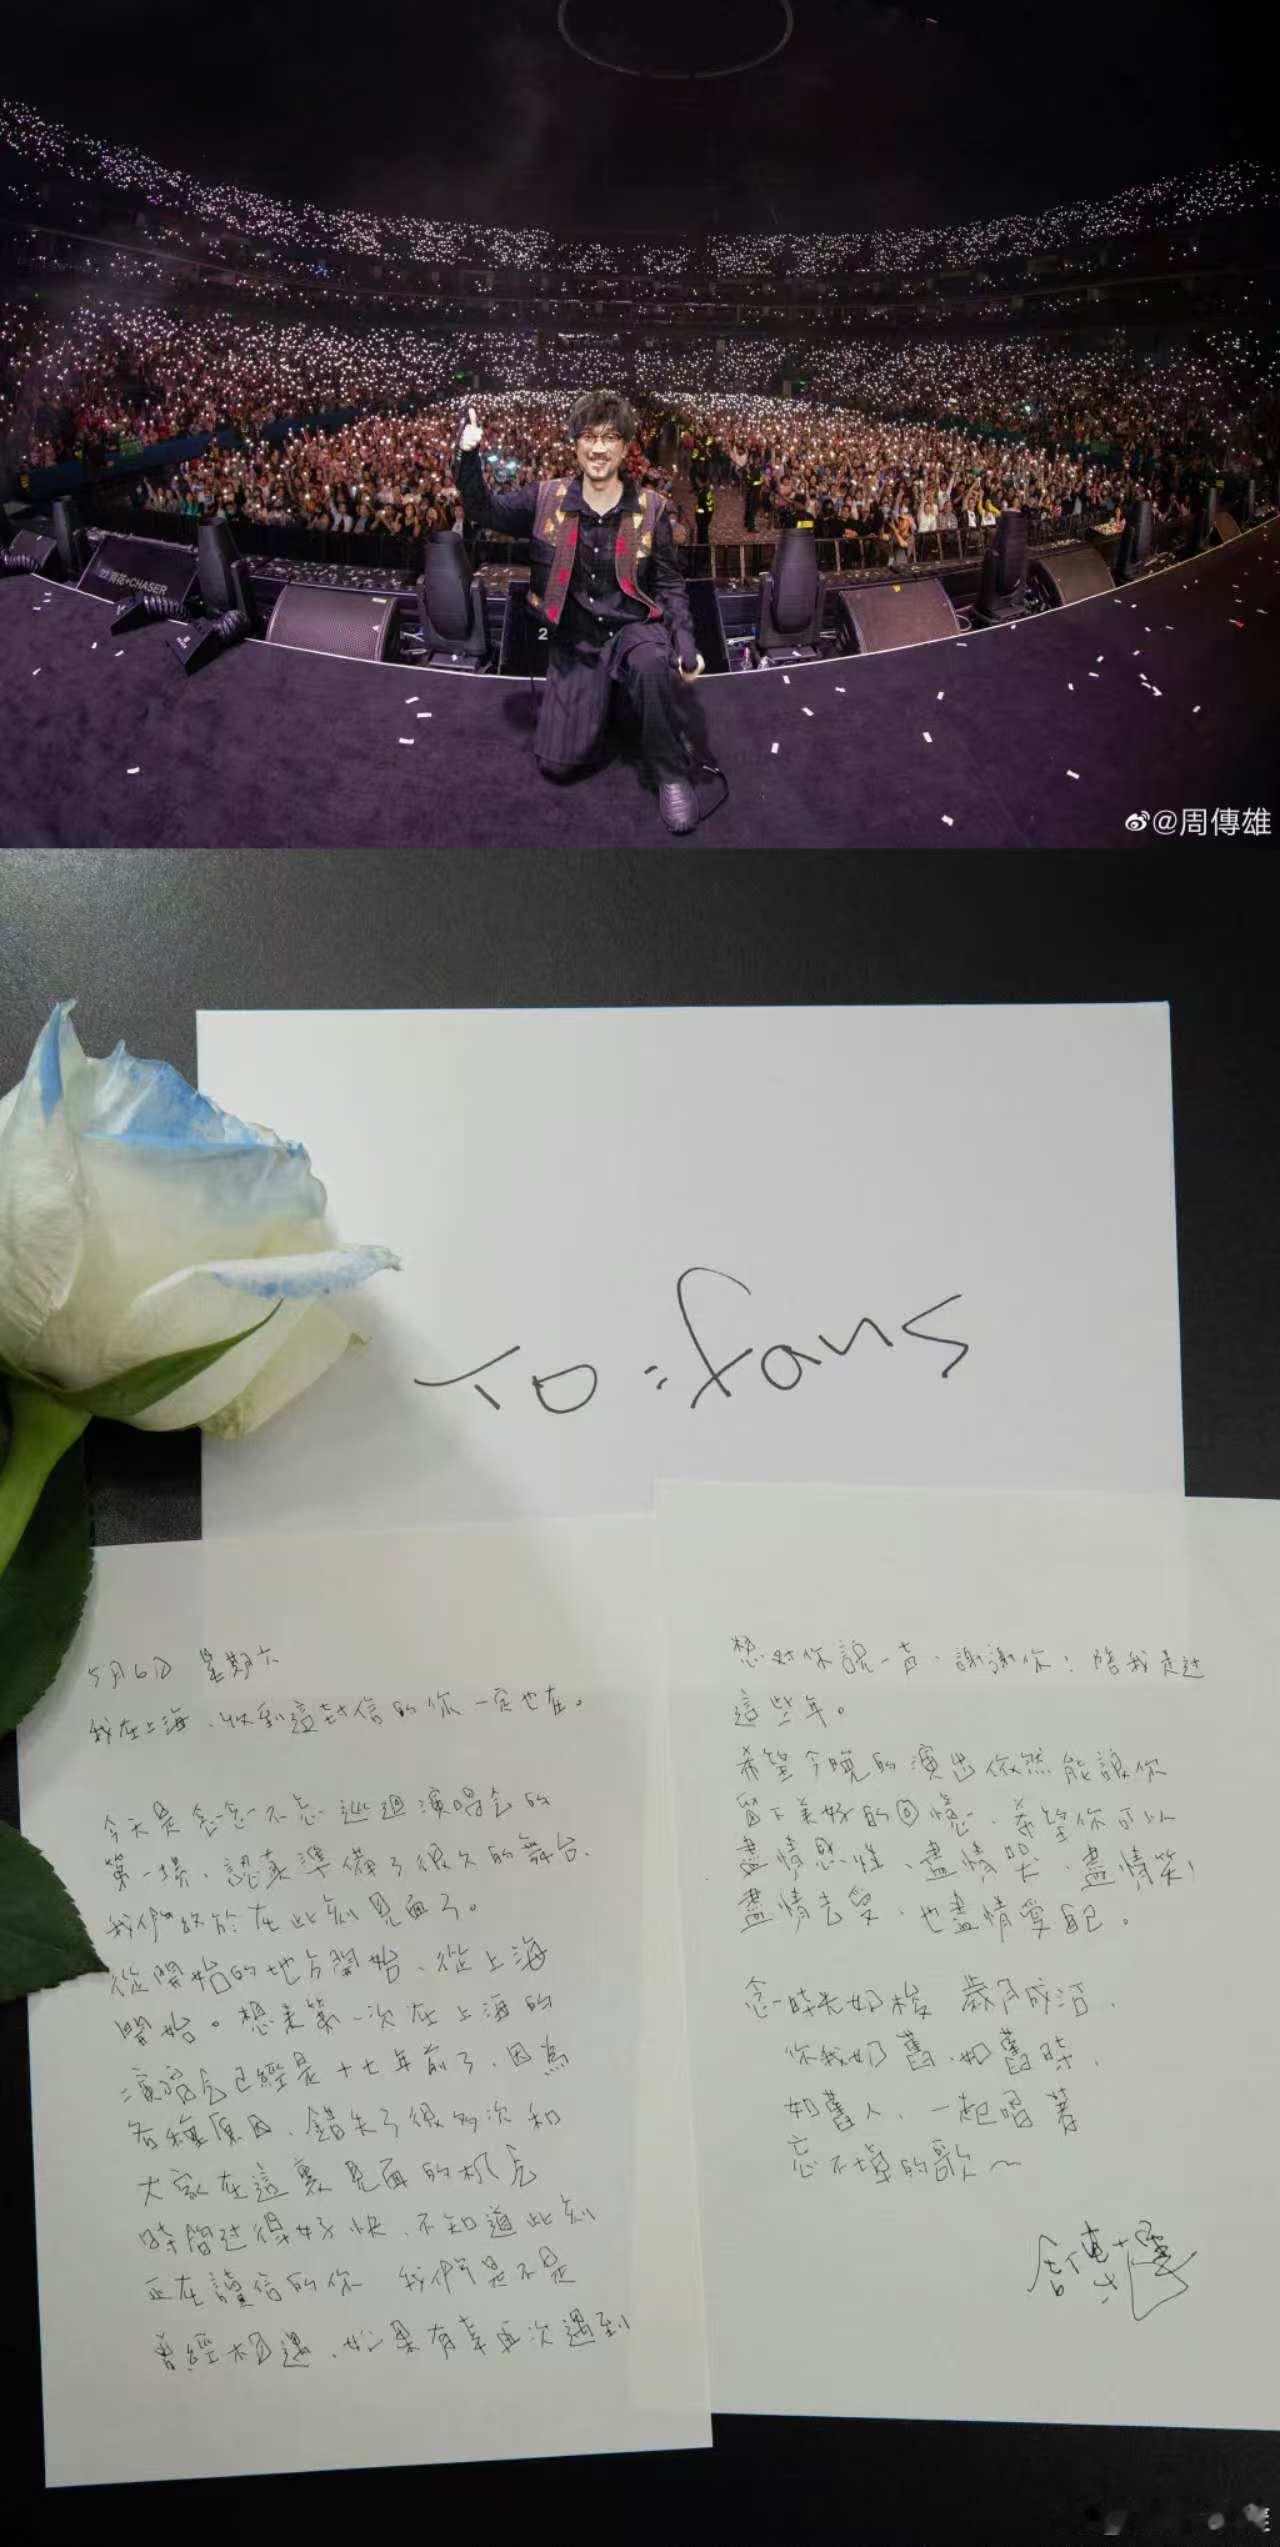 @周傳雄
To:fans
5月6日 星期六
我在上海、收到這封信的你一定也在。
今天是念念不忘巡迴演唱會的
第一場、認真準備了很久的舞台、
我們終於在此刻見面了。
從開始的地方開始、從上海
開始。想來第一次在上海的
演唱会已經是十七年前了、因為
各種原因、錯失了很多次和
大家在這裏見面的机会
時間过得好快、不知道此刻
正在讀信的你 我們是不是
曾經相遇、如果有幸再次遇到
想对你說一声、謝謝你！陪我走过
這些年。
希望今晚的演出依然能讓你
留下美好的回憶、希望你可以
盡情感性、盡情哭、盡情笑、
盡情去愛、也盡情愛自己。
念時光如梭 歲月成活、
你我如舊、如舊時、
如舊人、一起唱著
忘不掉的歌~
周傳雄